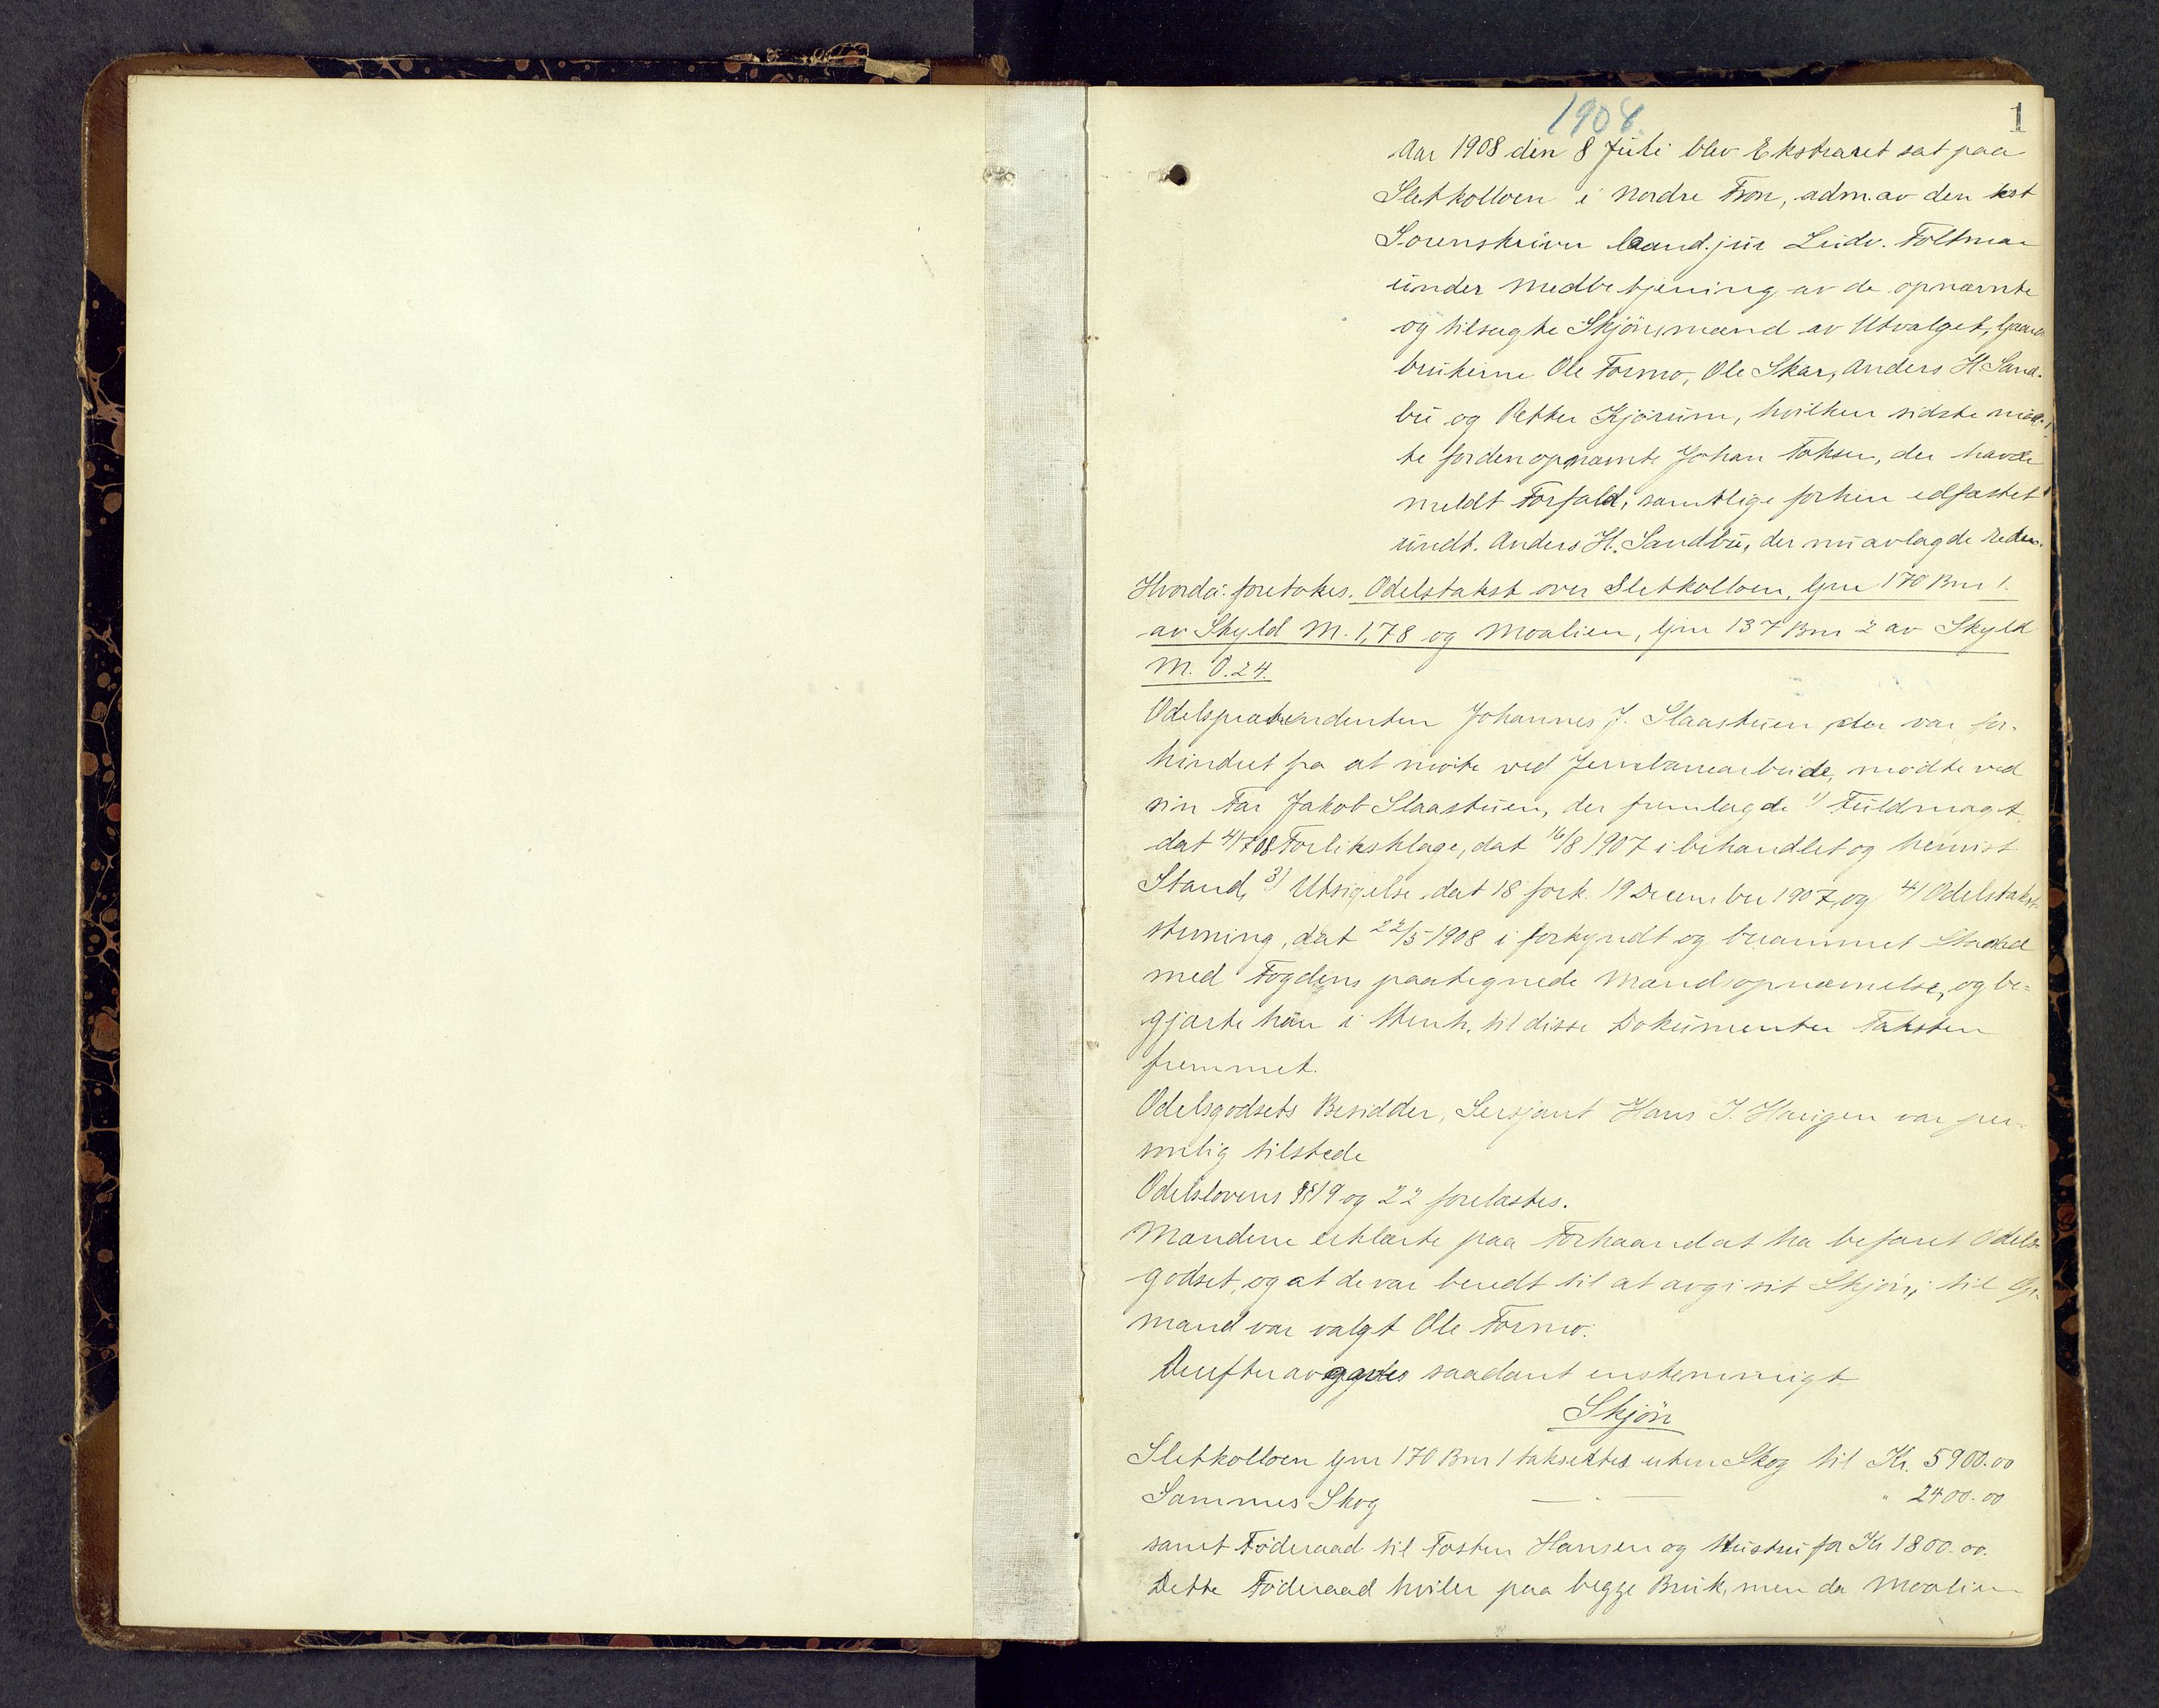 1908.
1
Aar 1908 den 8 Juli blev Ekstraret sat paa
Sletkolloen i Nordre Fron, adm. av den kst
Sorenskriver Cand. jur Ludv. Foltmar
under Medbetjening av de opnævnte
og tilsagte Skjönsmænd av Utvalget, Gaard-
brukerne Ole Formo, Ole Skar, Anders H. Sand-
bu og Petter Kjörum, hvilken sidste möt-
te for den opnævnte Johan Toksen, der havde
meldt Forfald, samtlige forhen edfæstet
undt. Anders H. Sandbu, der nu avlagde Eden.
Hvorda: foretokes. Odelstakst over Sletkolloen, Gnr 170 Bnr 1.
av Skyld M. 1,78 og Moalien, Gnr 137 Bnr 2 av Skyld
M. 0.24.
Odelsprætendenten Johannes J. Slaastuen, der var for-
hindret fra at möte ved Jernbanearbeide, mödte ved
sin Far Jakob Slaastuen, der fremlagde 1) Fuldmagt,
dat 4/7 08 Forliksklage, dat 16/8 1907 i behandlet og henvist
Stand, 3) Utsigelse dat 18 fork. 19 December 1907, og 4) Odelstakst-
stevning, dat 22/5 1908 i forkyndt og berammet Stand
med Fogdens paategnede Mandsopnævnelse, og be-
gjærte han i Henh. til disse Dokumenter Taksten
fremmet.
Odelsgodsets Besidder, Sersjant Hans J. Haugen var per-
sonlig tilstede
Odelslovens §§ 19 og 22 forelæstes.
Mændene erklærte paa Forhaand at ha befaret Odels-
godset, og at de var beredt til at avgi sit Skjön; til Op-
mand var valgt Ole Formo.
Derefter avgaves saadant enstemmigt
Skjön
Sletkolloen Gnr 170 Bnr 1 taksertes uten Skog til Kr. 5900.00
Sammes Skog — " — " 2400.00
samt Föderaad til Tosten Hansen og Hustru for Kr 1800.00.
Dette Föderaad hviler paa begge Bruk, men da Moalien